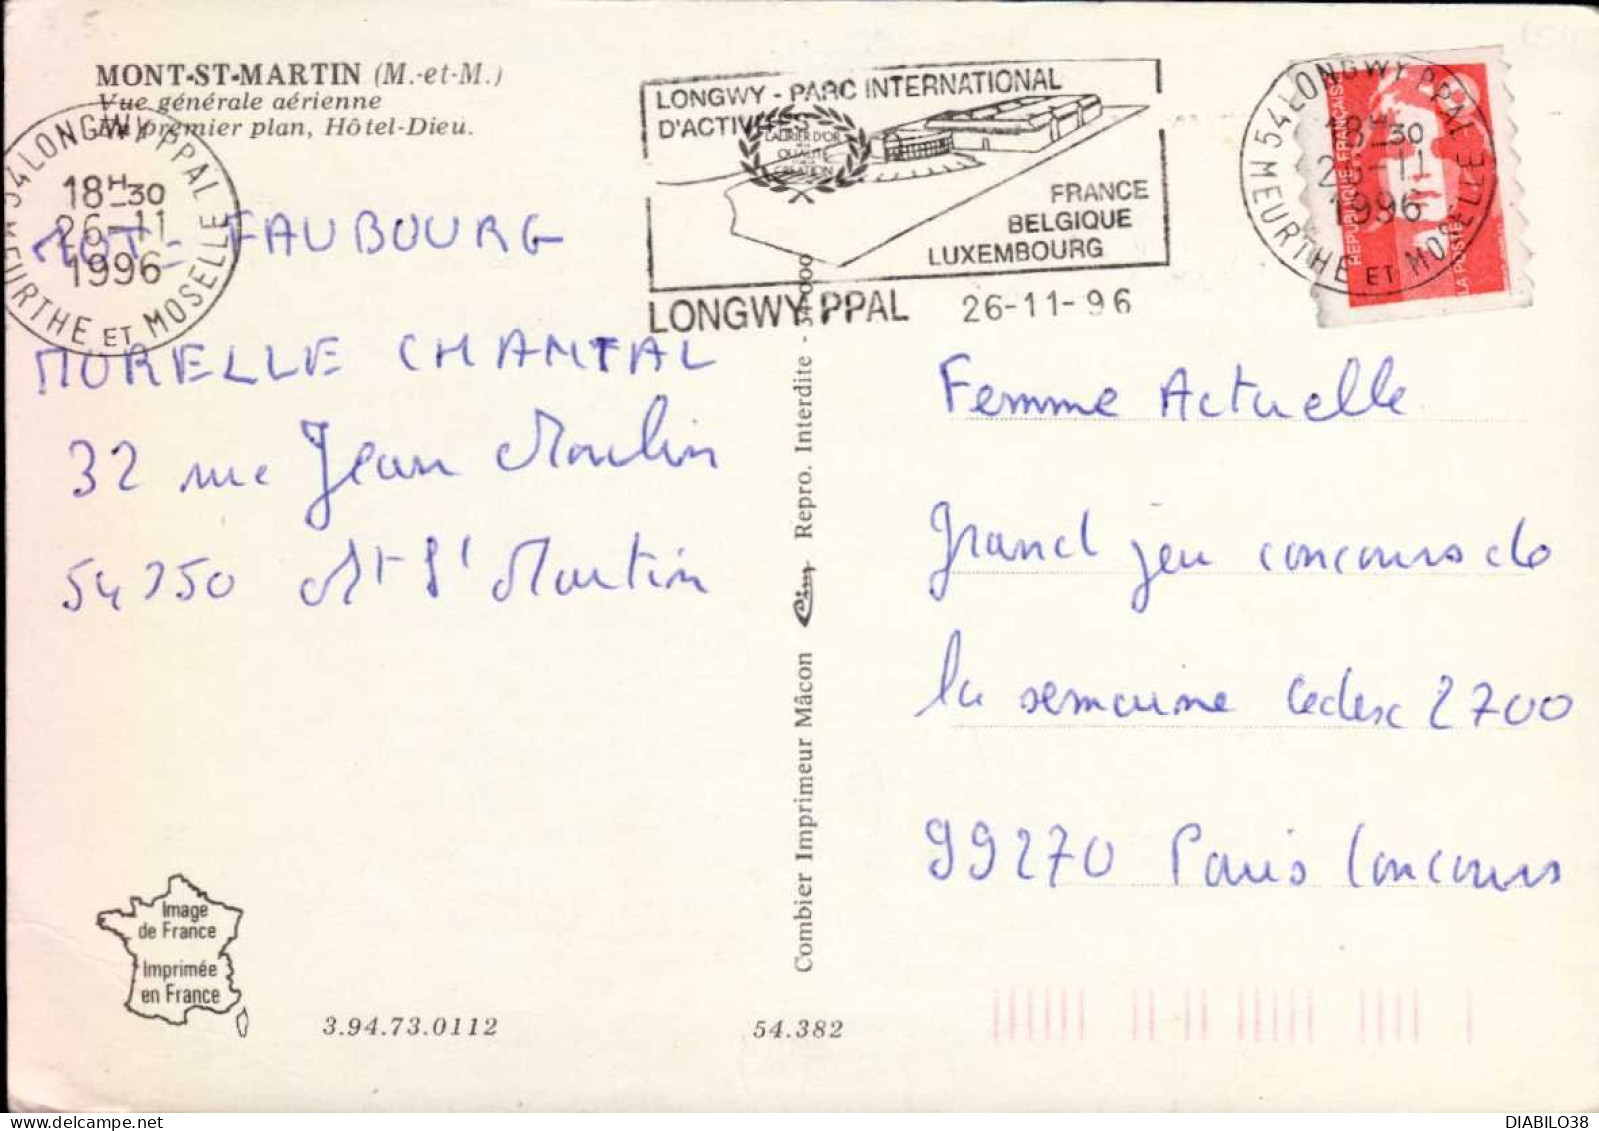 MONT-ST-MARTIN (M.-et-M.)
Vue générale aérienne
Au premier plan, Hôtel-Dieu.
54 LONGWY PPAL
18H30
26-11
1996
MEURTHE ET MOSELLE
LONGWY - PARC INTERNATIONAL
D'ACTIVITES
LAURIER D'OR
QUALITE
CREATION
FRANCE
BELGIQUE
LUXEMBOURG
LONGWY PPAL 26-11-96
54 LONGWY PPAL
18H30
26-11
1996
MEURTHE ET MOSELLE
REPUBLIQUE FRANÇAISE
LA POSTE
MOT: FAUBOURG
MORELLE CHANTAL
32 rue Jean Moulin
54350 Mt St Martin
Combier Imprimeur Mâcon Cim Repro. Interdite -
Femme Actuelle
grand jeu concours de
la semaine Cedex 2700
99270 Paris Concours
Image
de France
Imprimée
en France
3.94.73.0112
54.382
DIABILO38